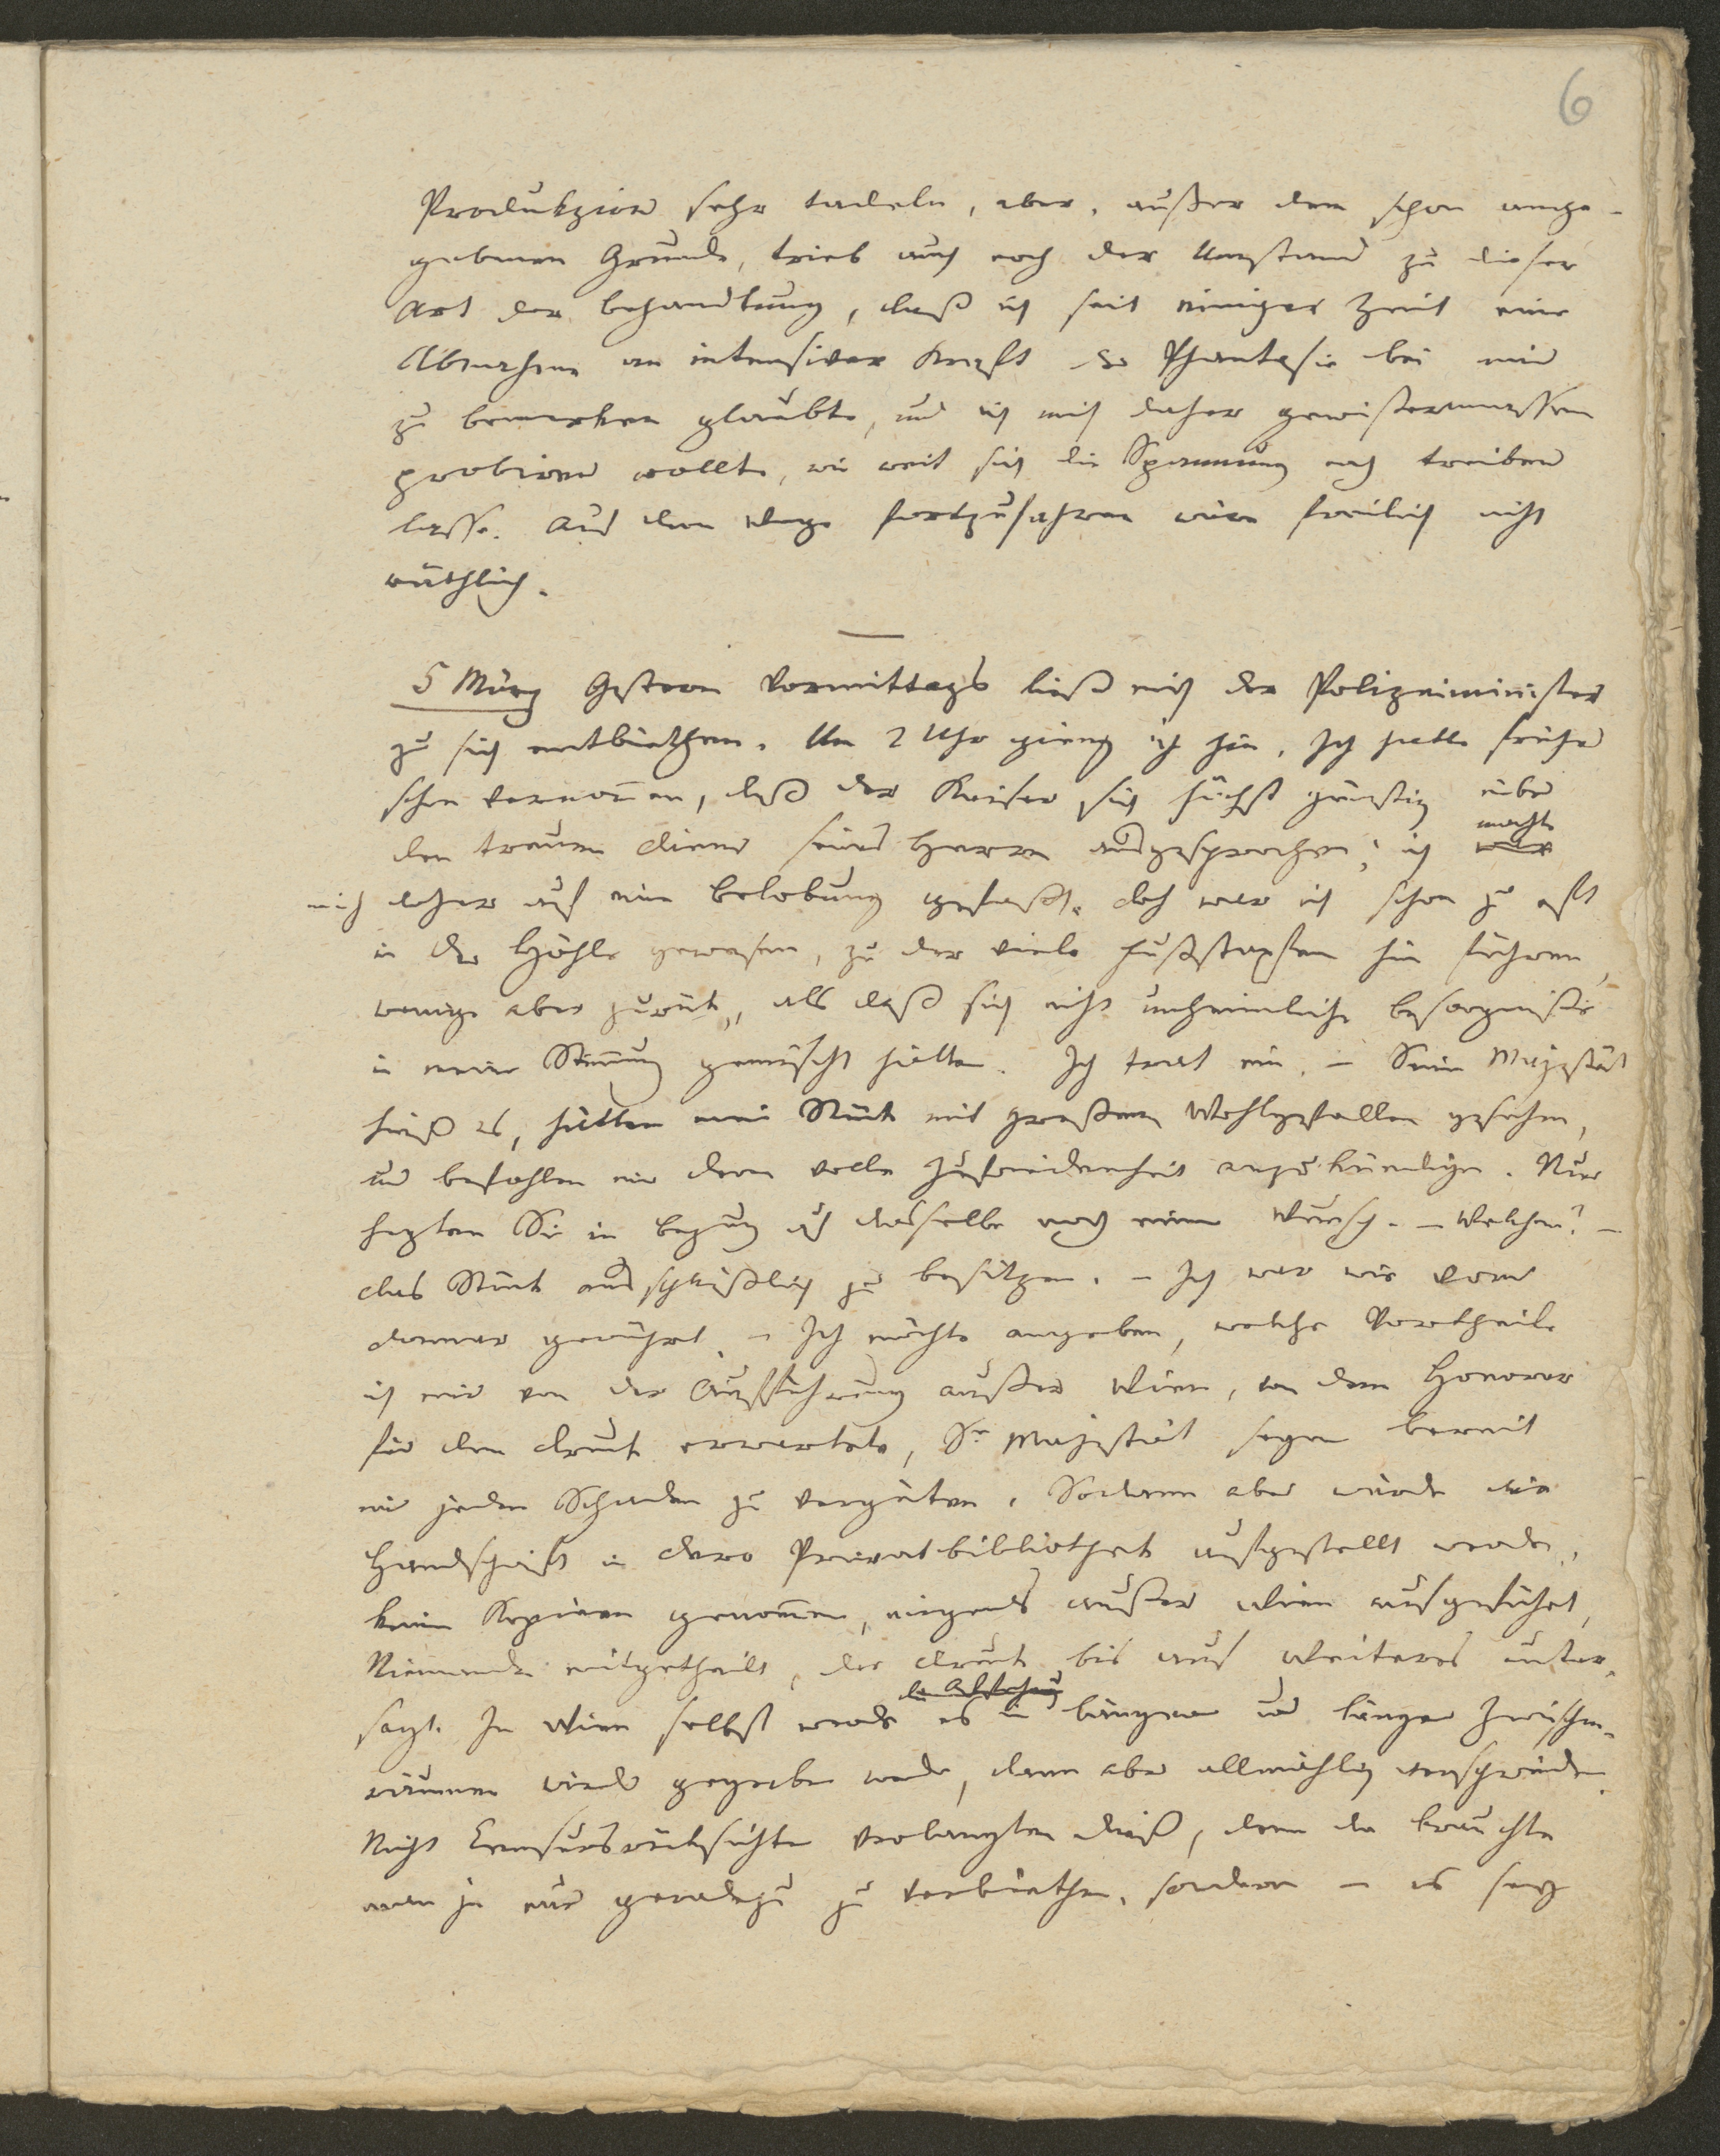 6
Produkzion sehr tadeln, aber, außer dem schon ange-
gebenen Grunde, trieb auch noch der Umstand zu dieser
Art der Behandlung, daß ich seit einiger Zeit eine
Abnahme an intensiver Kraft der Phantasie bei mir
zu bemerken glaubte, und ich mich daher gewißermassen
probiren wollte, wie weit sich die Spannung noch treiben
lasse. Auf dem Wege fortzufahren wäre freilich nicht
räthlich.
5 März Gestern Vormittags ließ mich der Polizeiminister
zu sich entbiethen. Um 2 Uhr gieng ich hin. Ich hatte früher
schon vernom̄en, daß der Kaiser sich höchst günstig über
den treuen Diener seines Herrn ausgesprochen; ich war machte
mich daher auf eine Belobung gefaßt. doch war ich schon zu oft
in der Höhle gewesen, zu der viele Fußstapfen hin führen,
wenige aber zurük, als daß sich nicht unheimliche Besorgniße
in meine Stim̄ung gemischt hätten. Ich trat ein. – Seine Majestät
hieß es, hätten mein Stück mit großem Wohlgefallen gesehen,
und befahlen mir dero volle Zufriedenheit anzukündigen. Nur
hegten Sie in Bezug auf dasselbe noch einen Wunsch. – Welchen? –
das Stück ausschließlich zu besitzen. – Ich war wie vom
Donner gerührt. – Ich möchte angeben, welche Vortheile
ich mir von der Aufführung außer Wien, von dem Honorar
für den Druck erwartete, Sr Majestät seyen bereit
mir jeden Schaden zu vergüten. Sodann aber würde die
Handschrift in dero Privatbibliothek aufgestellt werden,
keine Kopieen genom̄en, nirgends außer Wien aufgeführt,
Niemanden mitgetheilt, der Druck bis auf Weiteres unter-
sagt. In Wien selbst werde es in längern und längern Zwischen-
räumen wieder gegeben werden, dann aber allmählig verschwinden.
Nicht Censursrücksichten verlangten dieß, denn da brauchte
man ja nur geradezu zu verbiethen, sondern – es sey